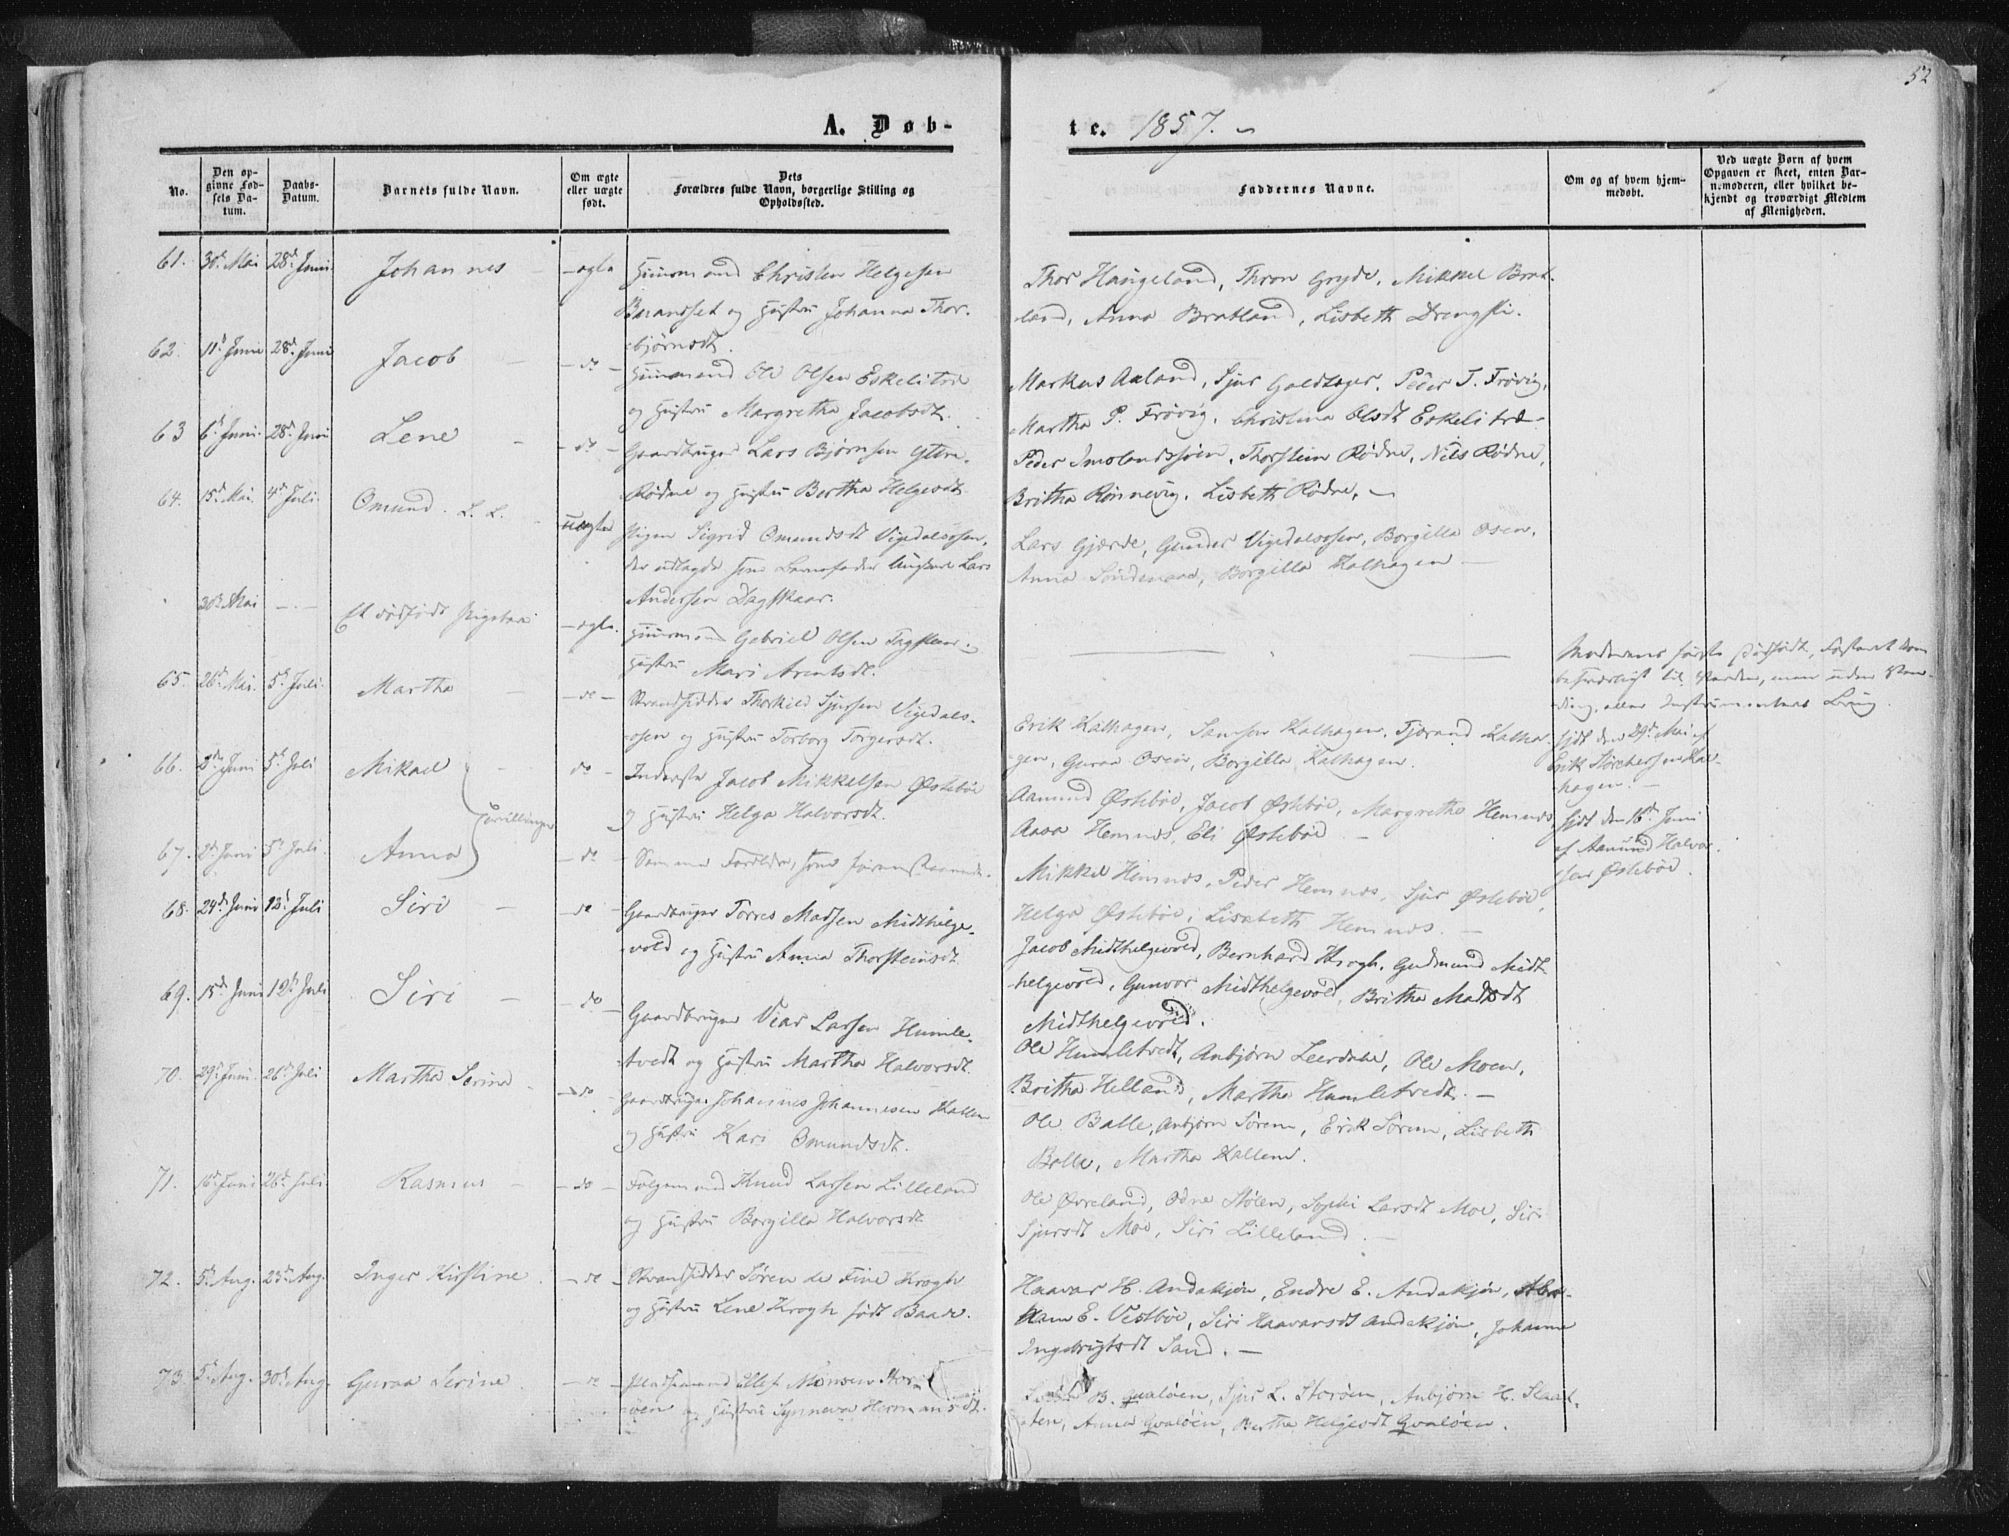 52
A. Døb-
te. 1857. –
No.
Den op-
givne Fød-
sels Da-
tum.
Daabs-
Datum.
Barnets fulde Navn.
Om ægte
eller uægte
født.
Dets
Forældres fulde Navn, borgerlige Stilling og
Opholdssted.
Faddernes Navne.
Om og af hvem hjem-
medøbt.
Ved uægte Børn af hvem
Opgaven er skeet, enten Bar-
nemoderen, eller hvilket be-
kjendt og troværdigt Medlem
af Menigheden.
61. 30d. Mai 28d. Juni Johannes – ægte Huusmand Christen Helgesen
Brandset og Hustru Johanna Thor-
bjørnsdt.
Thor Haugeland, Thron Gryde, Mikkel Brat-
land, Anna Bratland, Lisbeth Drengsti.
62. 11d Juni 28d. Juni Jacob – do – Huusmand Ole Olsen Eskelitræ
og Hustru Margretha Jacobsdt.
Markus Aaland, Sjur Guldtager, Peder T. Frøvig,
Martha P. Frøvig, Christina Olsdt Eskelitræ –
63 6d. Juni 28d. Juni Lene – do – Gaardbruger Lars Bjørnsen Yttre-
Rødne og Hustru Bertha Helgesdt
Peder Imslandssjøen, Thorstein Rødne, Nils Rødne,
Britha Rønnevig, Lisbeth Rødne. –
64. 15d. Mai. 4d Juli. Omund. L. L. – uægte Pigen Sigrid Omundsdt Vigedalsosen,
der udlagde som Barnefader Ungkarl Lars
Andersen Dagskaar.
Lars Gjærde, Gunder Vigedalsosen, Borgilla Osen,
Anna Søndenaa, Borgilla Kalhagen –
30d. Mai – – Et dødfødt Pigebarn – ægte. Huusmand Gabriel Olsen Tagskaar,
Hustru Mari Arentsdt.
Moderens første dødfødt, Fosteret kom
til Verden, men uden Ven-
ding, eller Instrumenters Brug.
65. 26d. Mai. 5d. Juli. Martha – do – Strandsidder Thorkild Sjursen Vigedals-
osen og Hustru Torborg Torgersdt.
Erik Kalhagen, Samson Kalhagen, Tjørand Kalha-
gen, Guroe Osen, Borgilla Kalhagen.
hjdt den 29d. Mai af
Erik Kal-
hagen. –
66. 2d. Juni 5d. Juli Mikael – do – Inderste Jacob Mikkelsen Østebøe
og Hustru Helga Halvorsdt.
Tvillinger
Aamund Østebøe, Jacob Østebøe, Margretha Hemnes,
Aasa Hemnes, Eli Østebøe –
hjdt den 16d. Juni
af Aamund Halvor-
sen Østebøe.
67. 2d Juni 5d. Juli. Anna – do – Samme Forældre, som foranstaaende.
Mikkel Hemnes, Peder Hemnes, Sjur Østebøe,
Helga Østebøe, Lisabeth Hemnes. –
68. 24d. Juni 12d. Juli Siri – do – Gaardbruger Torres Madsen Midthelge-
vold og Hustru Anna Thorsteinsdt
Jacob Midthelgevold, Bernhard Krogh, Gudmund Midt-
helgevold, Gunvor Midthelgevold, Britha Madsdt
Midthelgevold.
69. 15d. Juni 12d. Juli Siri – do – Gaardbruger Vier Larsen Humle-
tvedt og Hustru Martha Halvorsdt.
Ole Humletvedt, Anbjørn Leerdahl, Ole Moen,
Britha Helland, Martha Humletvedt. –
70. 29d. Juni 26d. Juli Martha Serine – do – Gaardbruger Johannes Johannesen Kallem
og Hustru Kari Omundsdt.
Ole Balle, Anbjørn Sørem, Erik Sørem, Lisbeth
Balle, Martha Kallem.
71. 16d. Juni 26d. Juli Rasmus – do – Folgemand Knud Larsen Lilleland
og Hustru Borgilla Halvorsdt
Ole Øvreland, Odne Stølen, Sophi Larsdt Moe, Siri
Sjursdt Moe, Siri Lilleland. –
72. 5d. Aug. 23d. Aug. Inger Kirstine – do – Strandsidder Søren de Fine Krogh
og Hustru Lene Krogh født Baade.
Haavar H. Andakjøn, Endre E. Andakjøn, Abra-
ham E. Vestbøe, Siri Haavarsdt Andakjøn, Johanne
Ingebrigtsdt Sand. –
73. 5d. Aug. 30d. Aug. Guroa Serine – do – Pladsemand Ellef Monsen Stor-
øen og Hustru Synneva Hermansdt.
B. Qvaløen, Sjur L. Storøen, Anbjørn H. Slaat-
ten, Anna Qvaløen, Bertha Helgesdt Qvaløen.